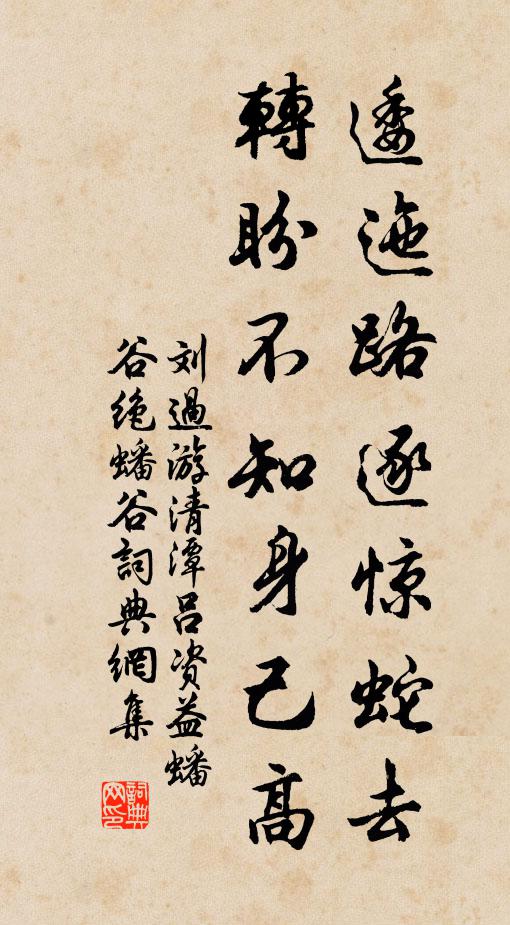 逶迤路逐惊蛇去
轉盼不知身己高
刘過游清潭吕资益蟠
谷绝蟠谷詞典網集
詞典
网印